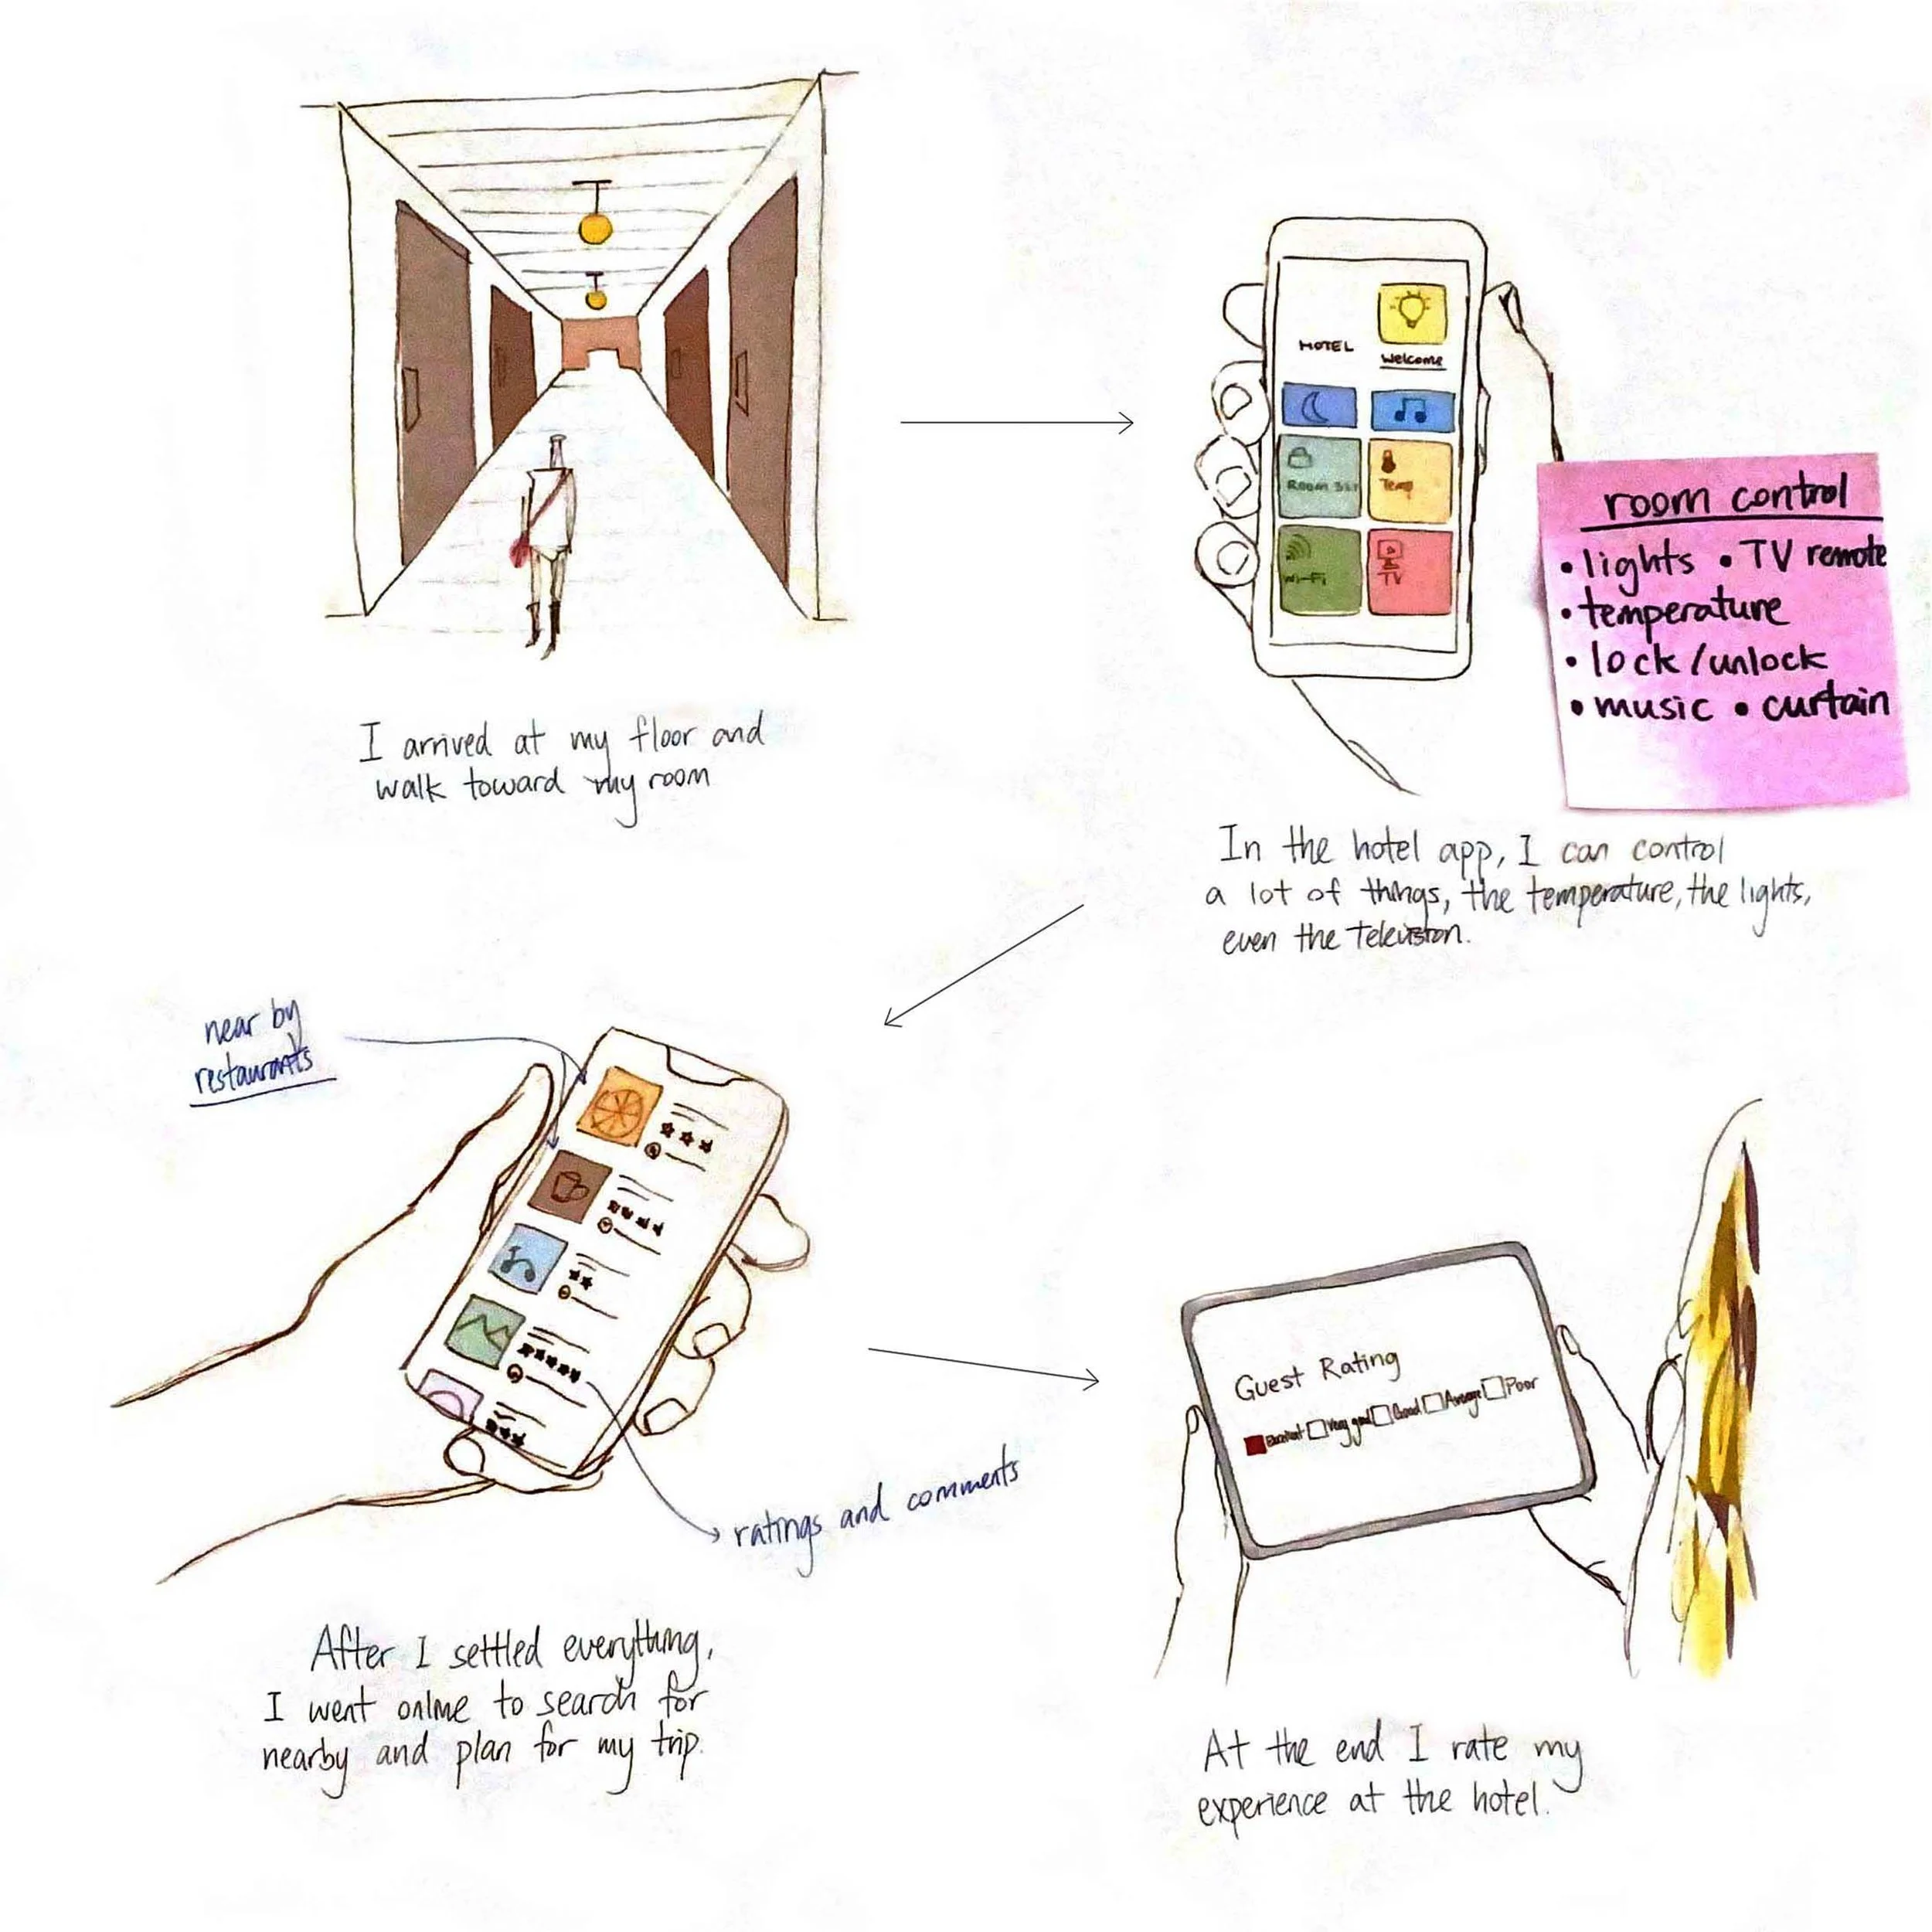 I arrived at my floor and
walk toward my room
HOTEL
Welcome
Room
Temp
Wi-Fi
TV
room control
• lights • TV remote
• temperature
• lock/unlock
• music • curtain
In the hotel app, I can control
a lot of things, the temperature, the lights,
even the television.
near by
restaurants
ratings and comments
After I settled everything,
I went online to search for
nearby and plan for my trip.
Guest Rating
Excellent Very good Good Average Poor
At the end I rate my
experience at the hotel.